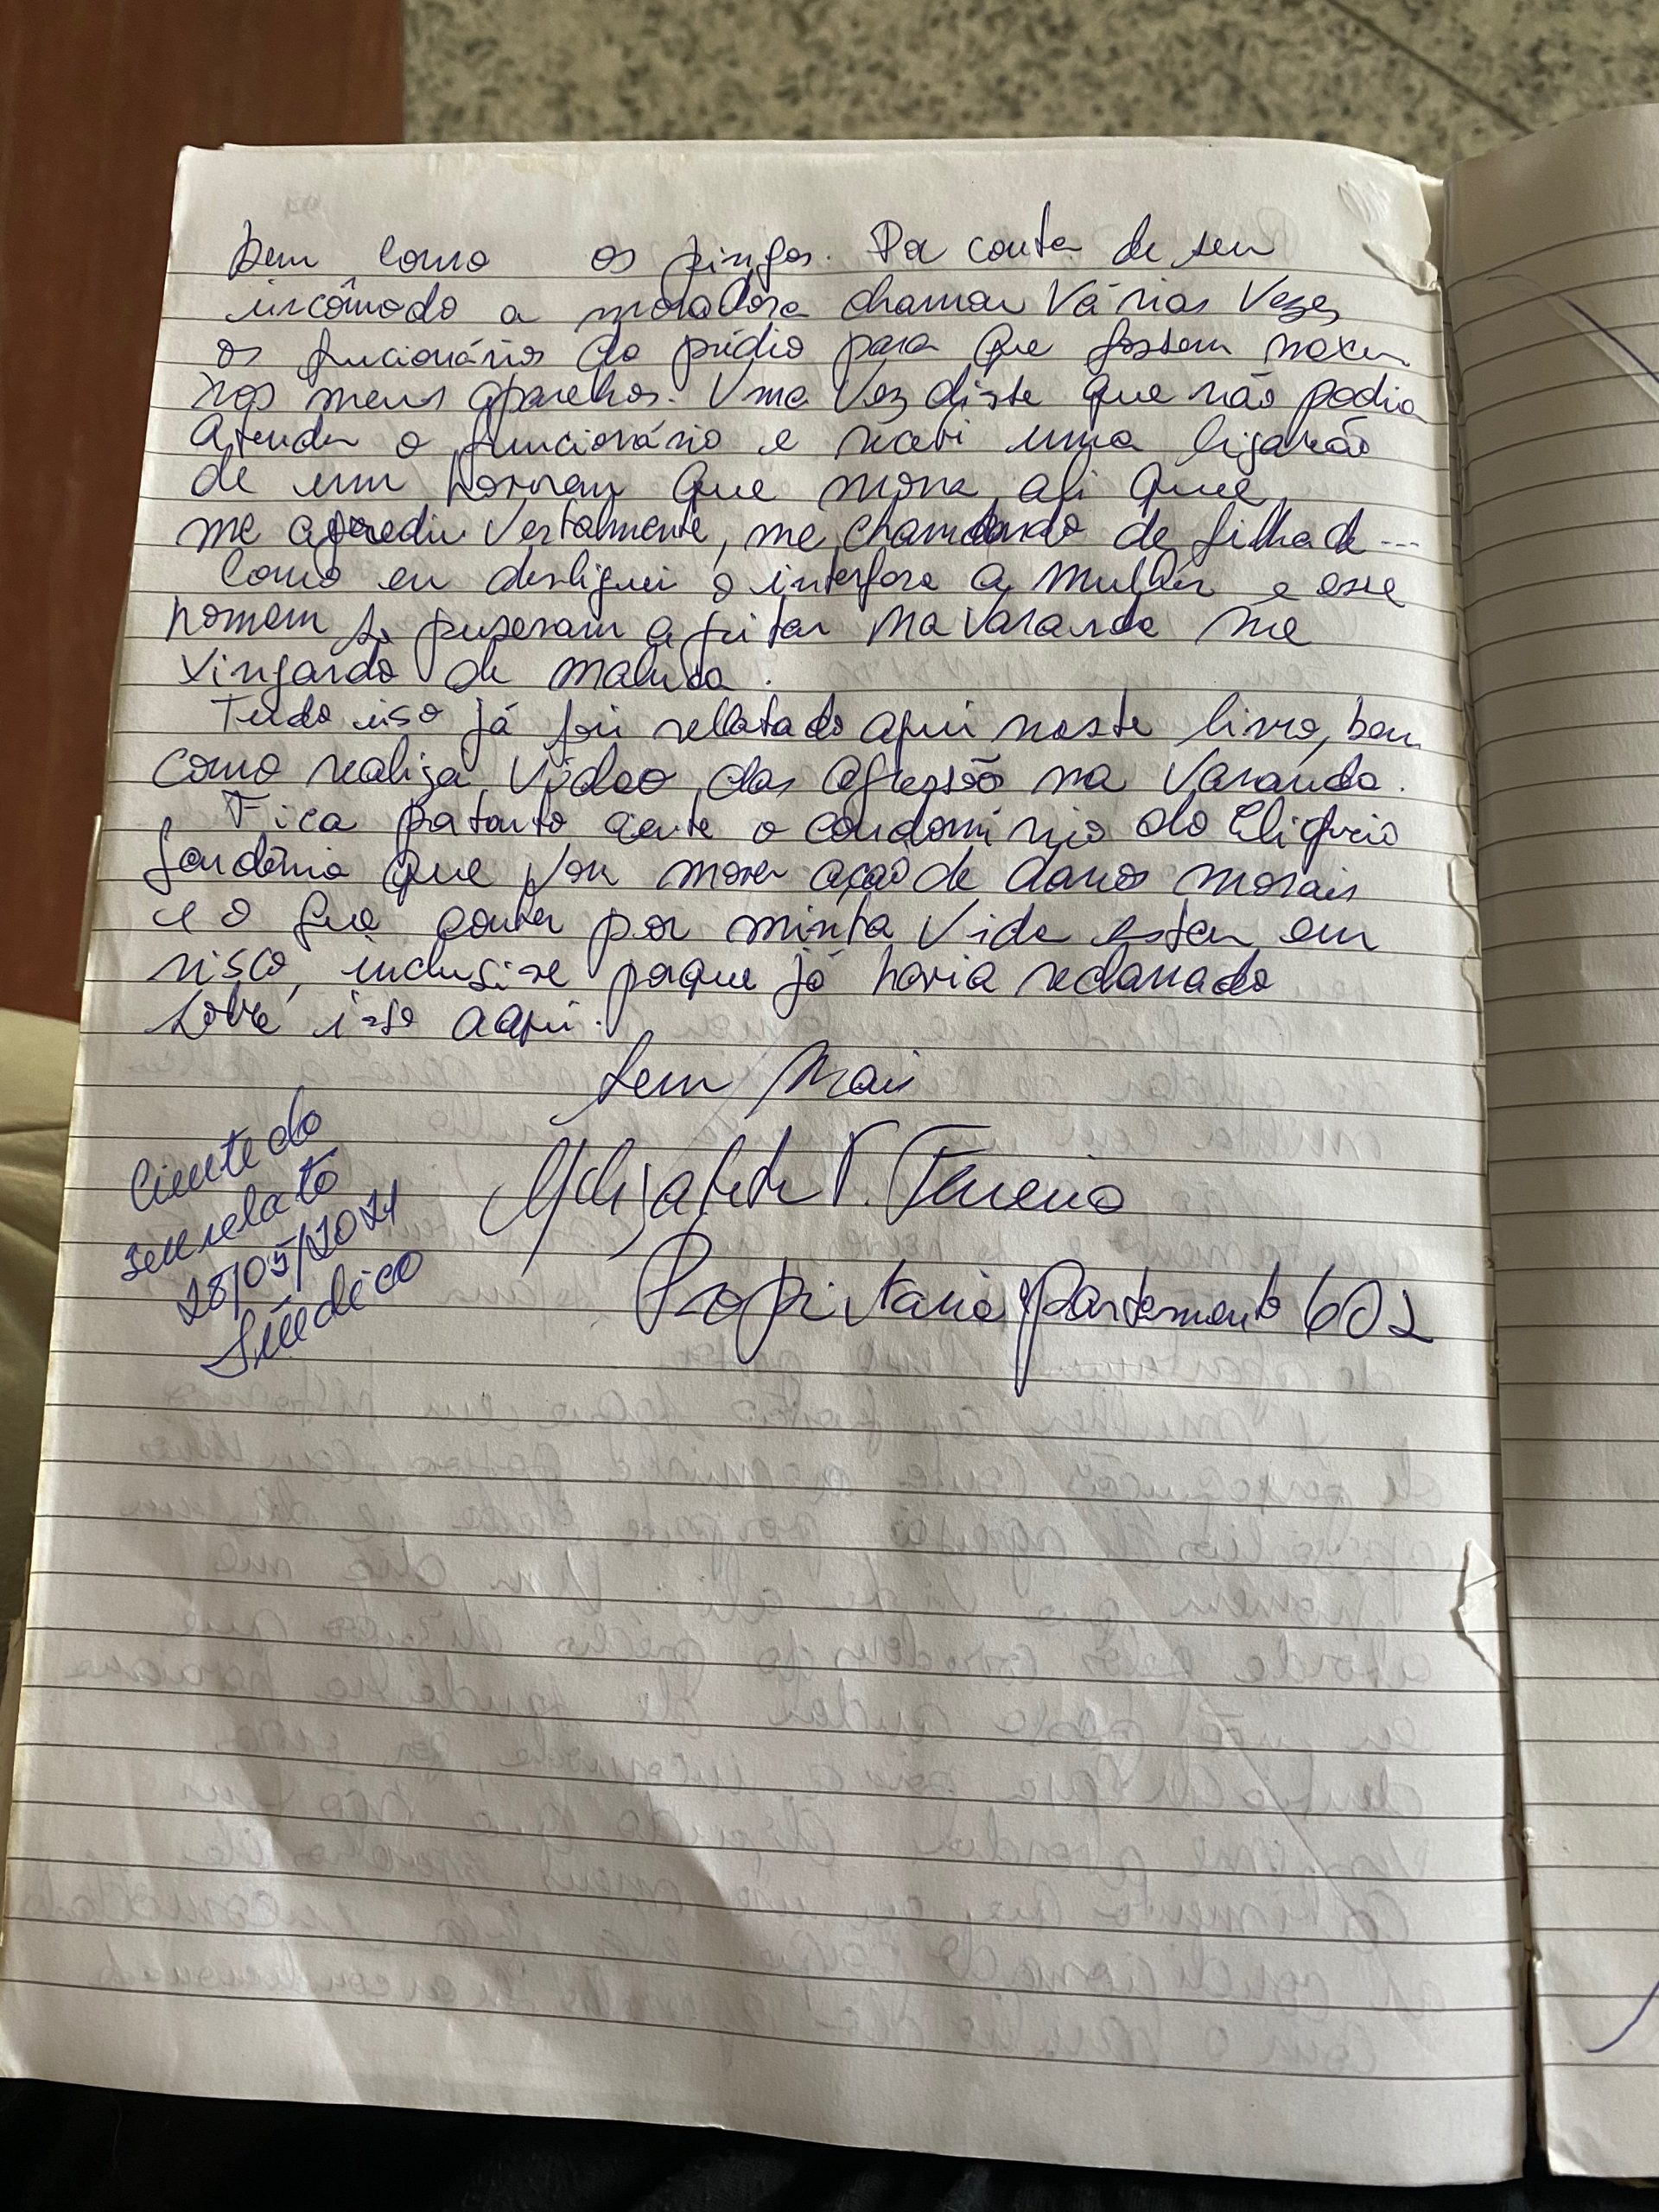 bem como os pingos. Por conta de seu
incômodo a moradora chamou Várias Vezes
os funcionários do prédio para que fossem mexer
nos meus aparelhos. Uma Vez disse que não podia
atender o funcionário e recebi uma ligação
de um homem que mora ali que
me agrediu Verbalmente, me chamando de filha de ...
Como eu desliguei o interfone a mulher e esse
homem se puseram a gritar na varanda me
xingando de maluca.
Tudo isso já foi rellatado aqui neste livro, bem
como realizei Vídeo das agressão na Varanda.
Fica portanto ciente o condomínio do
Gardênia que vou mover ação de danos morais
e o que couber por minha vida estar em
risco, inclusive porque já havia reclamado
sobre isso aqui.
Sem Mais
Propietaria Apartamento 602
Ciente do
seu relato
28/05/2021
Síndico